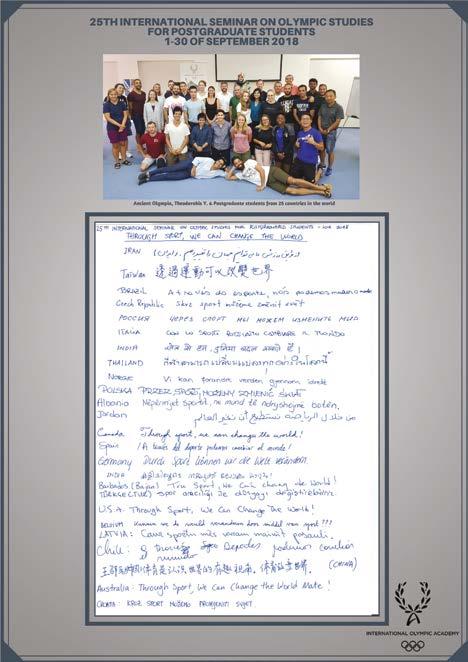 25TH INTERNATIONAL SEMINAR ON OLYMPIC STUDIES
FOR POSTGRADUATE STUDENTS
1-30 OF SEPTEMBER 2018
Ancient Olympia, Theodorohis Y. & Postgraduate students from 25 countries in the world
25TH INTERNATIONAL SEMINAR ON OLYMPIC STUDIES FOR POSTGRADUATE STUDENTS - IOA 2018
THROUGH SPORT, WE CAN CHANGE THE WORLD
IRAN
Taiwan 透過運動可以改變世界
BRAZIL Através do esporte, nós podemos mudar o mundo
Czech Republic Skrz sport můžeme změnit svět
РОССИЯ ЧЕРЕЗ СПОРТ МЫ МОЖЕМ ИЗМЕНИТЬ МИР
ITALIA CON LO SPORT POSSIAMO CAMBIARE IL MONDO
INDIA
THAILAND
NORGE Vi kan forandre verden gjennom idrett
POLSKA PRZEZ SPORT MOŻEMY ZMIENIĆ ŚWIAT
Albania Nëpërmjet sportit, ne mund të ndryshojmë botën.
Jordan من خلال الرياضة نستطيع أن نغير العالم
Canada Through sport, we can change the world!
Spain ¡A través del deporte podemos cambiar el mundo!
Germany Durch Sport können wir die Welt verändern.
INDIA
Barbados (Bajan) Tru Sport, We Cuh change de World!
TÜRKÇE spor aracılığı ile dünyayı değiştirebiliriz.
U.S.A. Through Sports, We Can Change The World!
BELGIUM Kunnen we de wereld veranderen door middel van sport???
LATVIA: Caur sportu mēs varam mainīt pasauli.
Chile: A través Deportes podemos cambiar
el mundo
(CHINA)
Australia: Through Sport, We Can Change the World Mate!
CROATIA KROZ SPORT MOŽEMO PROMIJENITI SVIJET.
INTERNATIONAL OLYMPIC ACADEMY